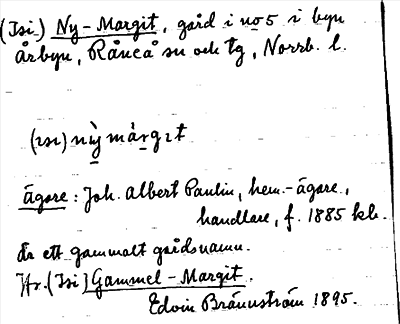 (Isi) Ny-Margit, gård i no 5 i byn
Årbyn, Råneå sn och tg, Norrb. l.
(ısı) nỳ màrgıt
Ägare: Joh. Albert Paulin, hem.-ägare,
handlare, f. 1885 kb.
Är ett gammalt gårdsnamn.
Jfr. (Isi) Gammel-Margit.
Edvin Brännström 1895.